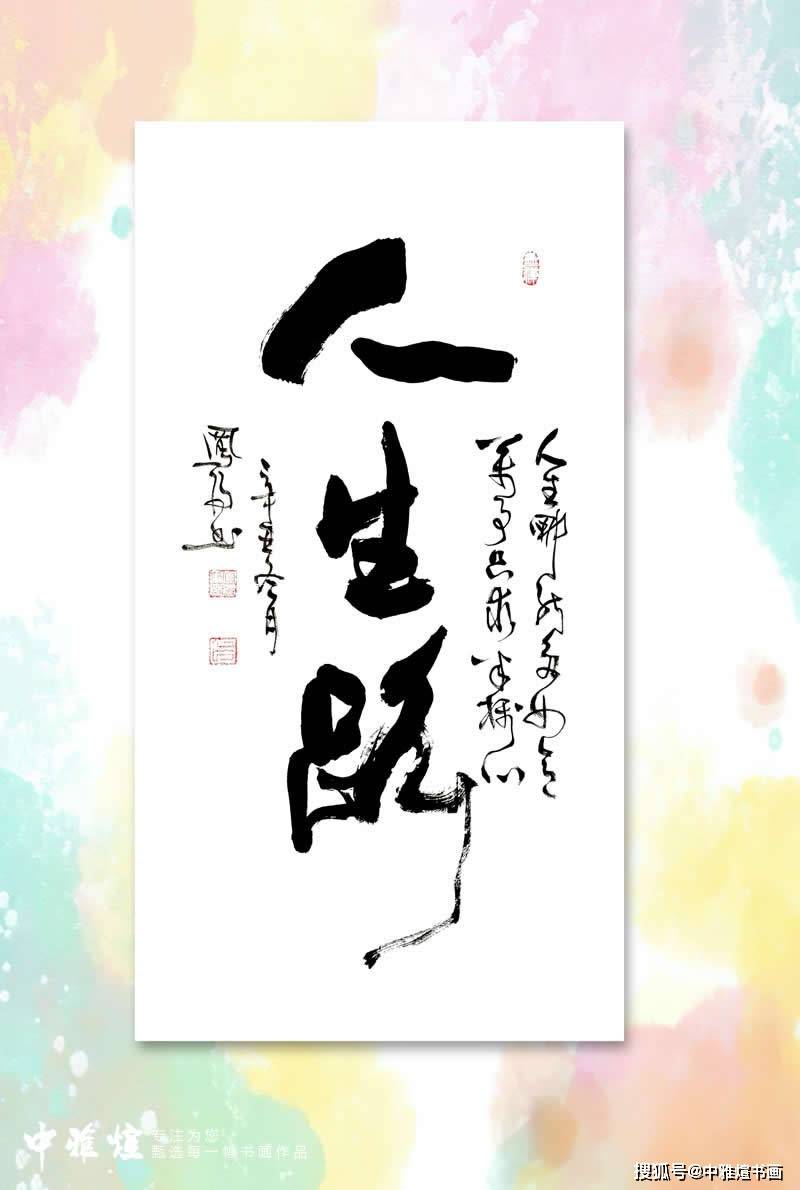 人生哪能多如意
萬事只求半稱心
人生路
辛丑冬月
中雅煊
专注为您
甄选每一幅书画作品
搜狐号@中雅煊书画